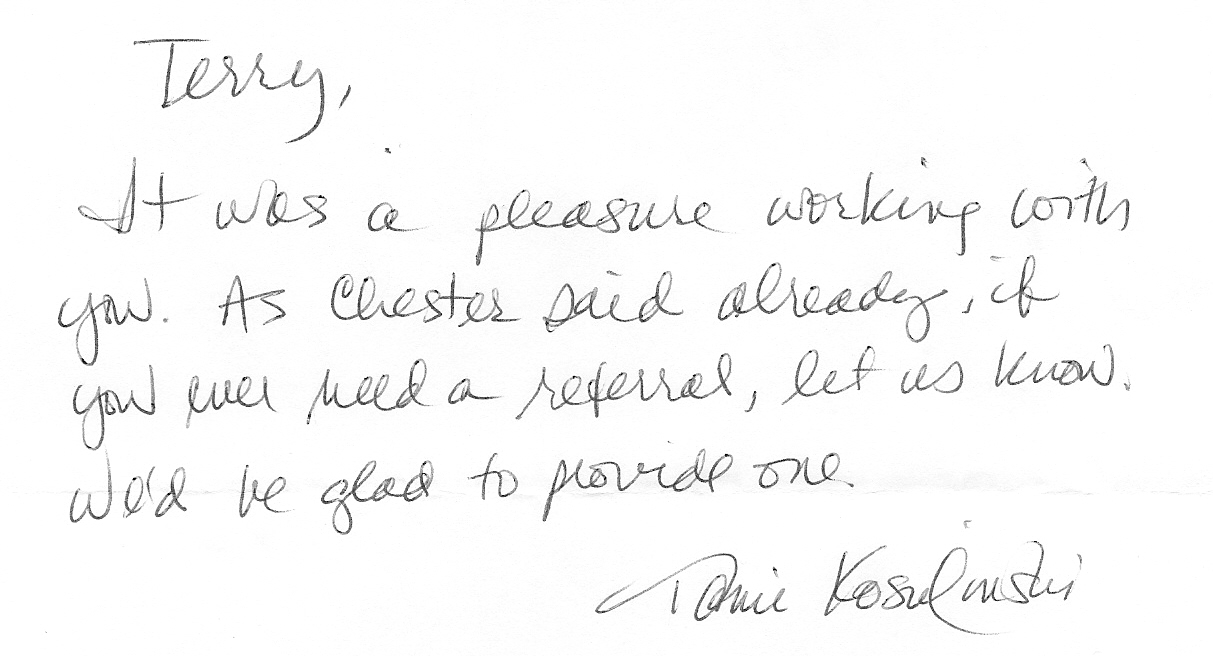 Terry,
It was a pleasure working with
you. As Chester said already, if
you ever need a referral, let us know.
We'd be glad to provide one.